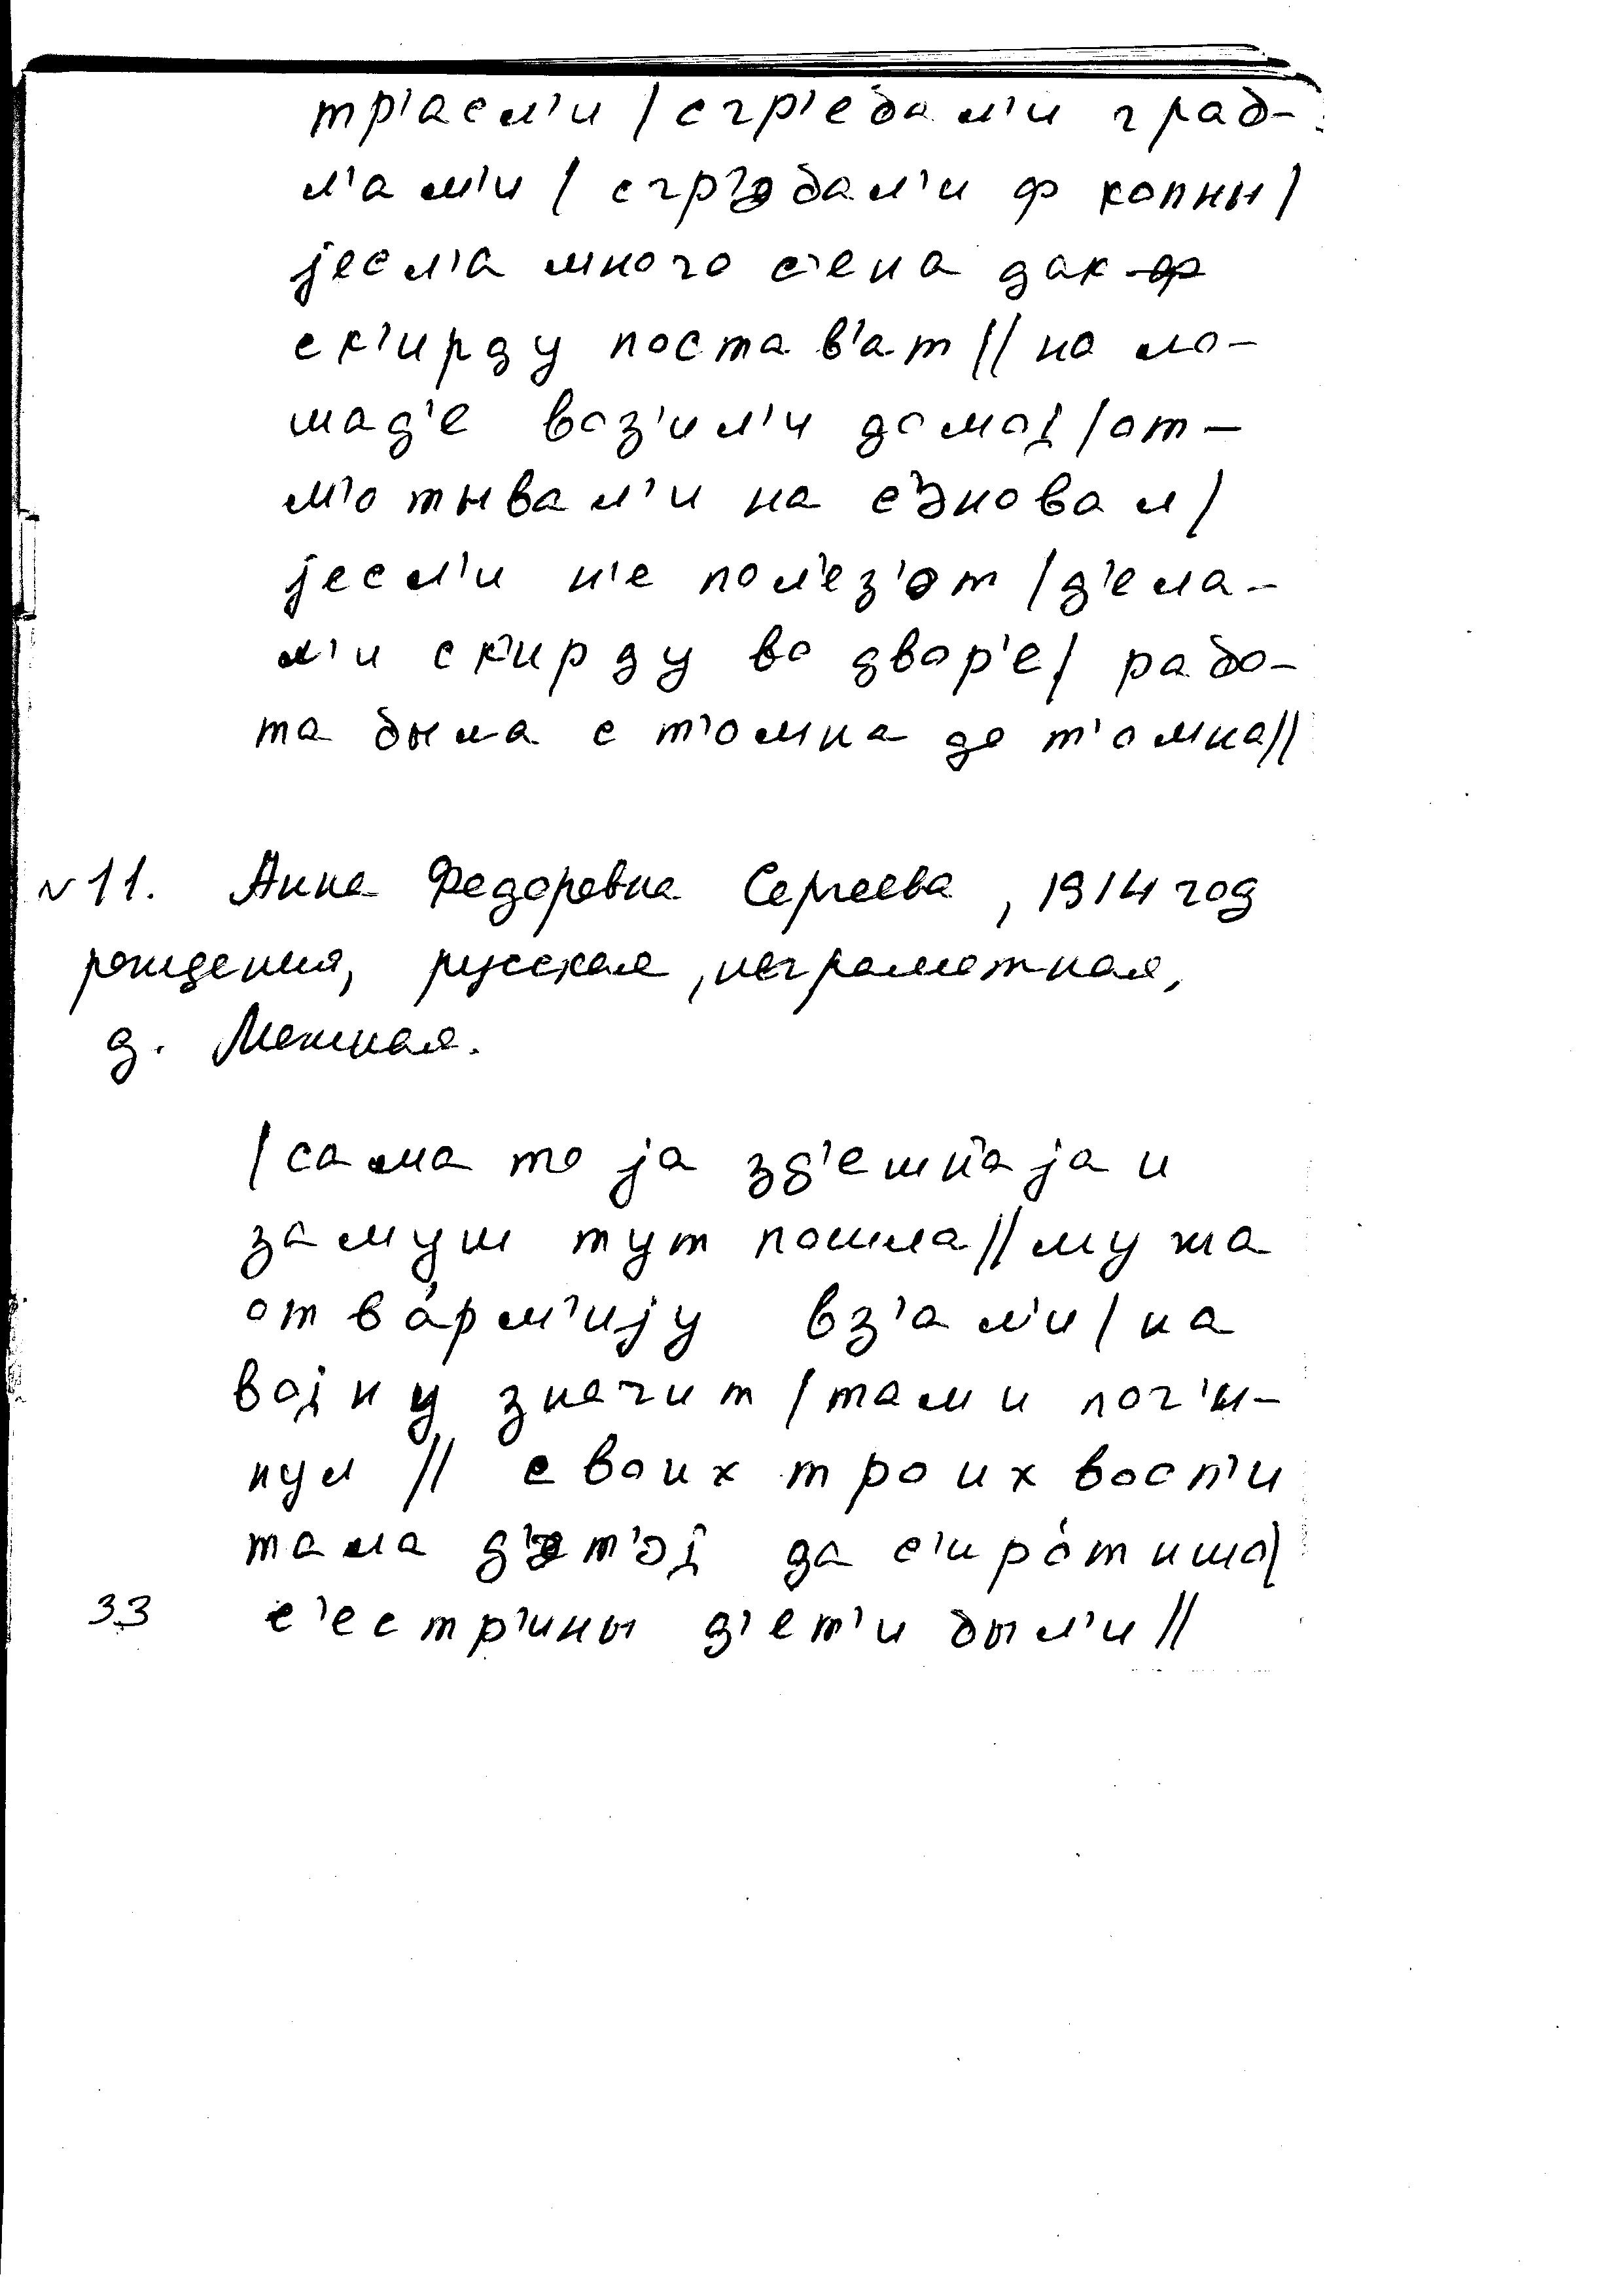 тр'асл'и / сгр'ебал'и граб-
л'ам'и / сгр'эбал'и ф копны /
јесл'а много с'ена дак ф
ск'ирду постав'ат // на ло-
шад'е воз'ил'и домој / от-
м'отывал'и на с'эновал /
јесл'и н'е пол'ез'от / д'ела-
л'и ск'ирду во двор'е / рабо-
та была с т'омна до т'омна //
№11. Анна Федоровна Сергеева, 1914 год
рождения, русская, неграмотная,
д. Межная.
/ сама то ја зд'ешн'аја и
замуш тут пошла // мужа
от ва́рм'ију вз'ал'и / на
војну значит / там и пог'и-
нул // своих троих восп'и
тала д'эт'эј да с'иро́тишо /
33 с'естр'ины д'ет'и был'и //